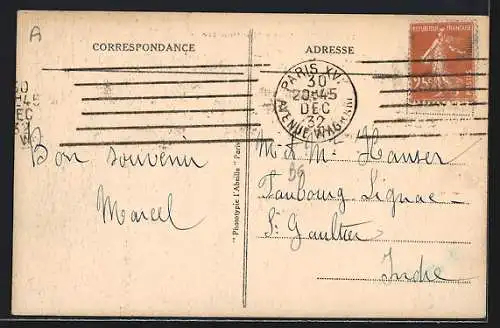 A
CORRESPONDANCE
ADRESSE
REPUBLIQUE FRANÇAISE
25c
PARIS XVII
30
20H45
DEC
32
AVENUE WAGRAM
30
45
DEC
32
W
Bon souvenir
Marcel
" Phototypie l'Abeille " Paris
M & Me Hauser
Faubourg Lignac
St Gaultier
Indre